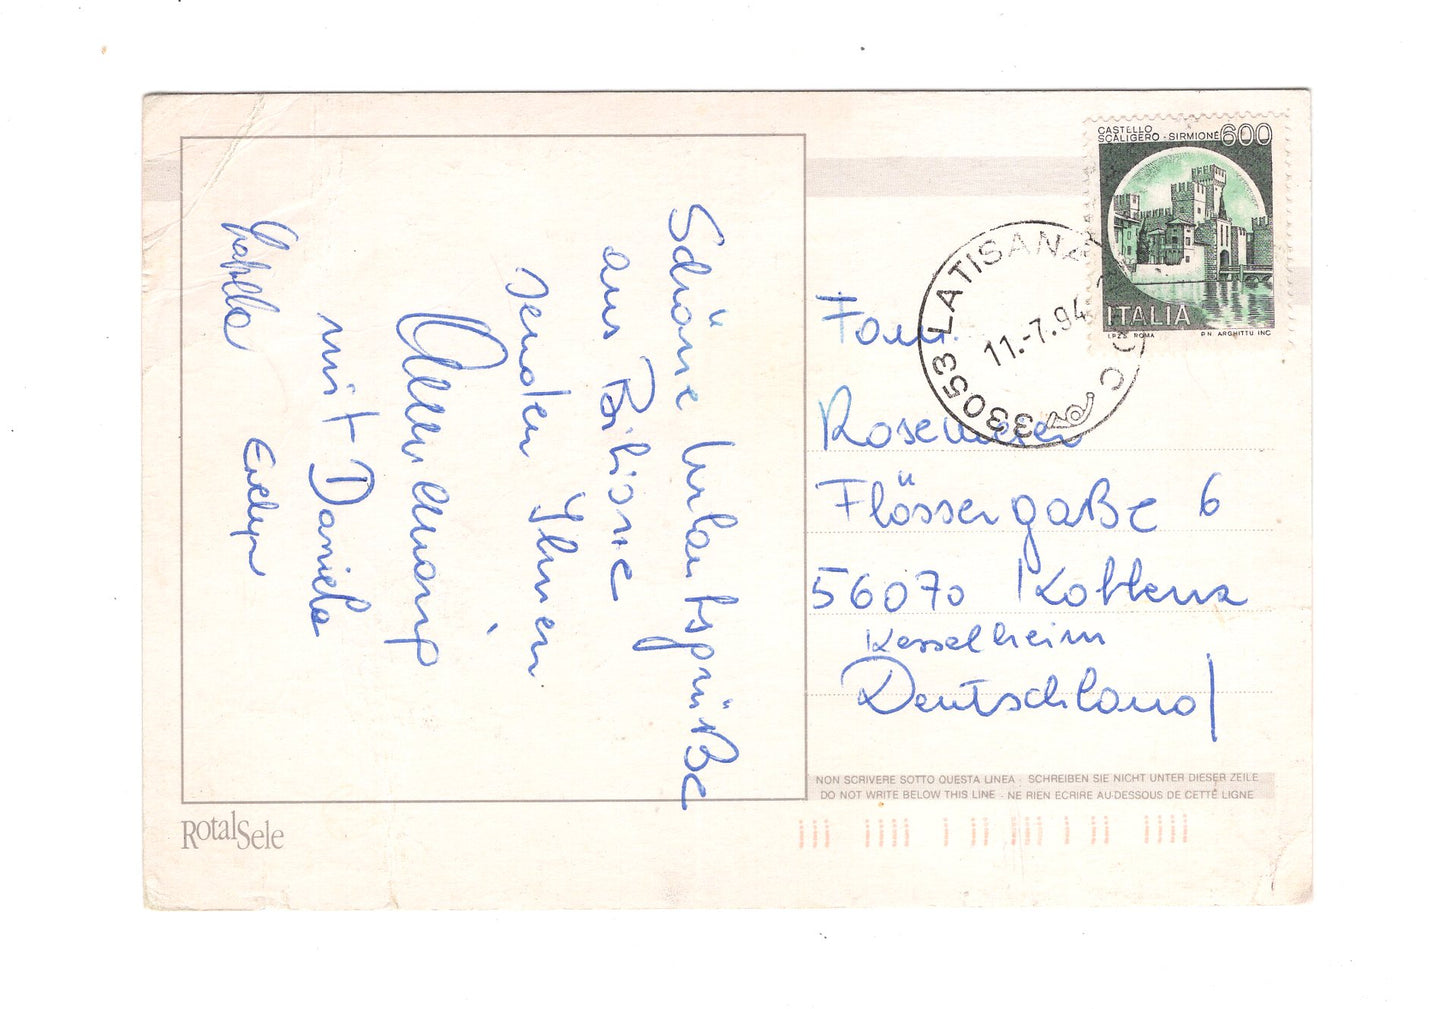 Schöne Urlaubsgrüße
aus Bibione
senden Ihnen
mit Daniela
Evelyn
CASTELLO
SCALIGERO - SIRMIONE 600
ITALIA
I.P.Z.S. ROMA P.N. ARGHITTU INC.
33053 LATISANA
11.-7.94
Fam.
Rosemeier
Flössergaße 6
56070 Koblenz
Kesselheim
Deutschland
NON SCRIVERE SOTTO QUESTA LINEA - SCHREIBEN SIE NICHT UNTER DIESER ZEILE
DO NOT WRITE BELOW THIS LINE - NE RIEN ECRIRE AU-DESSOUS DE CETTE LIGNE
RotalSele